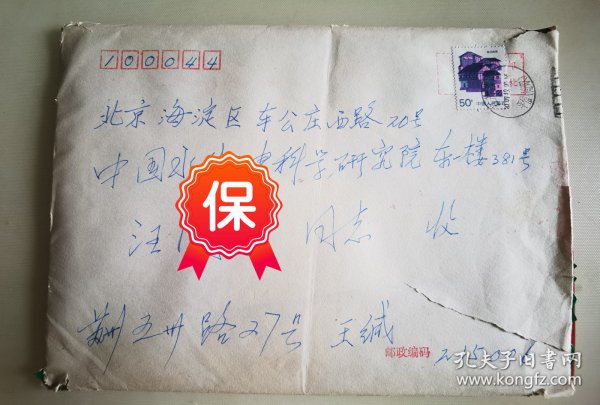 100044
50分 中国人民邮政
北京海淀区车公庄西路20号
中国水 电科学研究院 东楼381号
保
汪 同志 收
五卅路27号 王缄
邮政编码 215006
孔夫子旧书网
www.kongfz.com